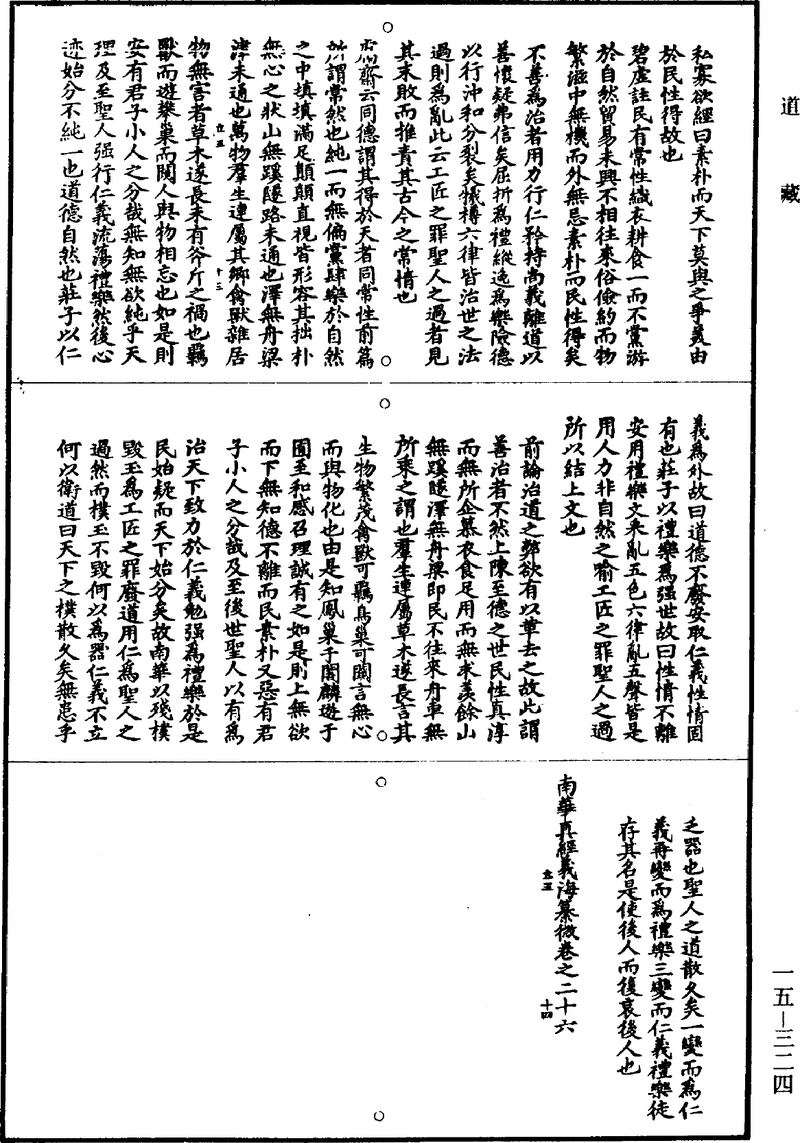 道藏
私寡欲經曰素朴而天下莫與之爭義由
於民性得故也
碧虛註民有常性織衣耕食一而不黨游
於自然貿易未興不相往來俗儉約而物
繁滋中無機而外無忌素朴而民性得矣
不善為治者用力行仁矜持尚義離道以
善懷疑弗信矣屈折為禮縱逸為樂險德
以行沖和分裂矣犠樽六律皆治世之法
過則為亂此云工匠之罪聖人之過者見
其末敗而推責其古今之常情也
鬳齋云同德謂其得於天者同常性前篇
所謂常然也純一而無偏黨肆樂於自然
之中填填滿足顛顛直視皆形容其拙朴
無心之狀山無蹊隧路未通也澤無舟梁
津未通也萬物羣生連屬其鄉禽獸雜居
物無害者草木遂長未有斧斤之禍也羈
獸而遊攀巢而闚人與物相忘也如是則
安有君子小人之分哉無知無欲純乎天
理及至聖人强行仁義流蕩禮樂然後心
迹始分不純一也道德自然也莊子以仁
義為外故曰道德不廢安取仁義性情固
有也莊子以禮樂為强世故曰性情不離
安用禮樂文采亂五色六律亂五聲皆是
用人力非自然之喻工匠之罪聖人之過
所以結上文也
前論治道之弊欲有以革去之故此謂
善治者不然上陳至德之世民性真淳
而無所企慕衣食足用而無求羨餘山
無蹊隧澤無舟梁即民不往來舟車無
所乘之謂也羣生連屬草木遂長言其
生物繁茂禽獸可羈鳥巢可闚言無心
而與物化也由是知鳳巢于閣麟遊于
囿至和感召理誠有之如是則上無欲
而下無知德不離而民素朴又惡有君
子小人之分哉及至後世聖人以有為
治天下致力於仁義勉强為禮樂於是
民始疑而天下始分矣故南華以殘樸
毀玉為工匠之罪廢道用仁為聖人之
過然而樸玉不毀何以為器仁義不立
何以衛道曰天下之樸散久矣無患乎
乏器也聖人之道散久矣一變而為仁
義再變而為禮樂三變而仁義禮樂徒
存其名是使後人而後哀後人也
南華真經義海纂微卷之二十六
一五—三二四